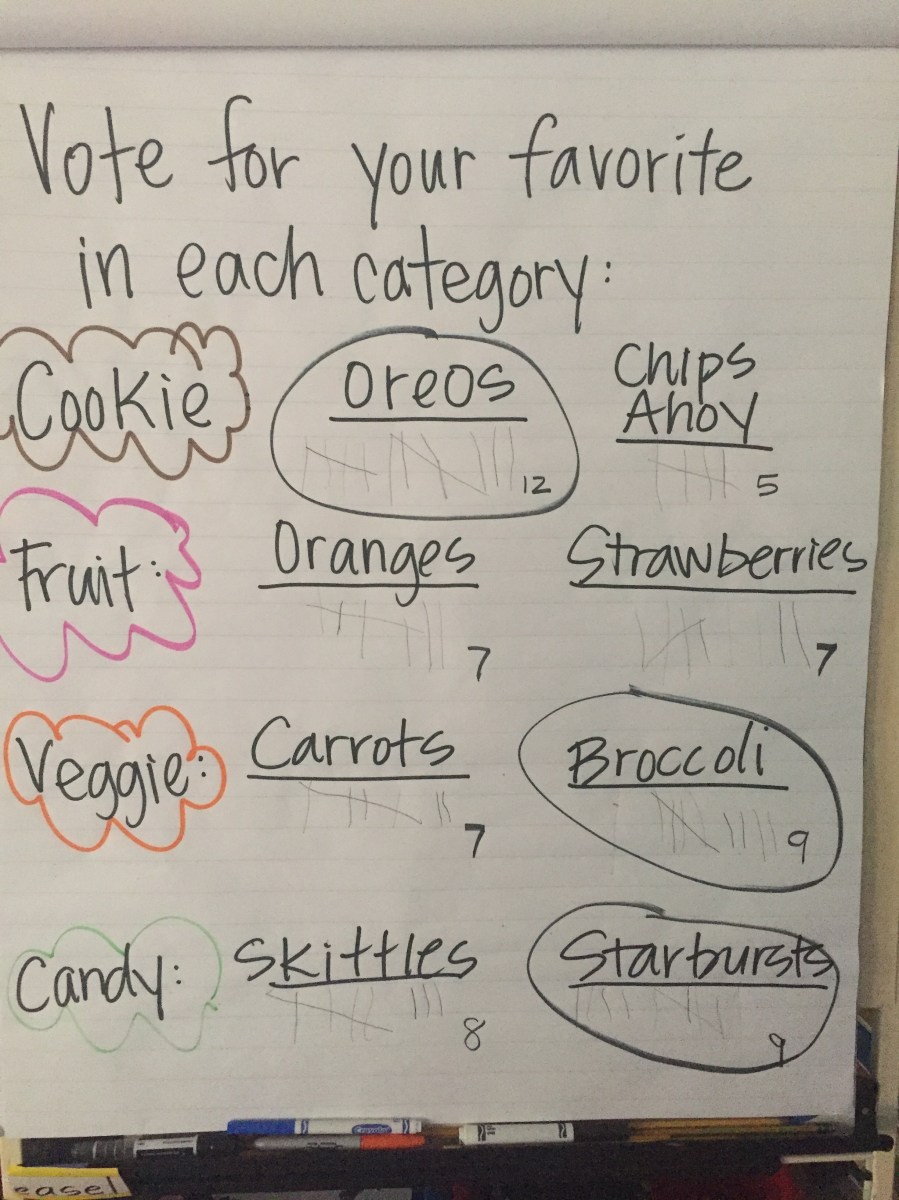 Vote for your favorite
in each category:
Cookie
Oreos
Chips
Ahoy
12
5
Fruit:
Oranges
Strawberries
7
7
Veggie:
Carrots
Broccoli
7
9
Candy:
Skittles
Starbursts
8
9
Crayola
easel